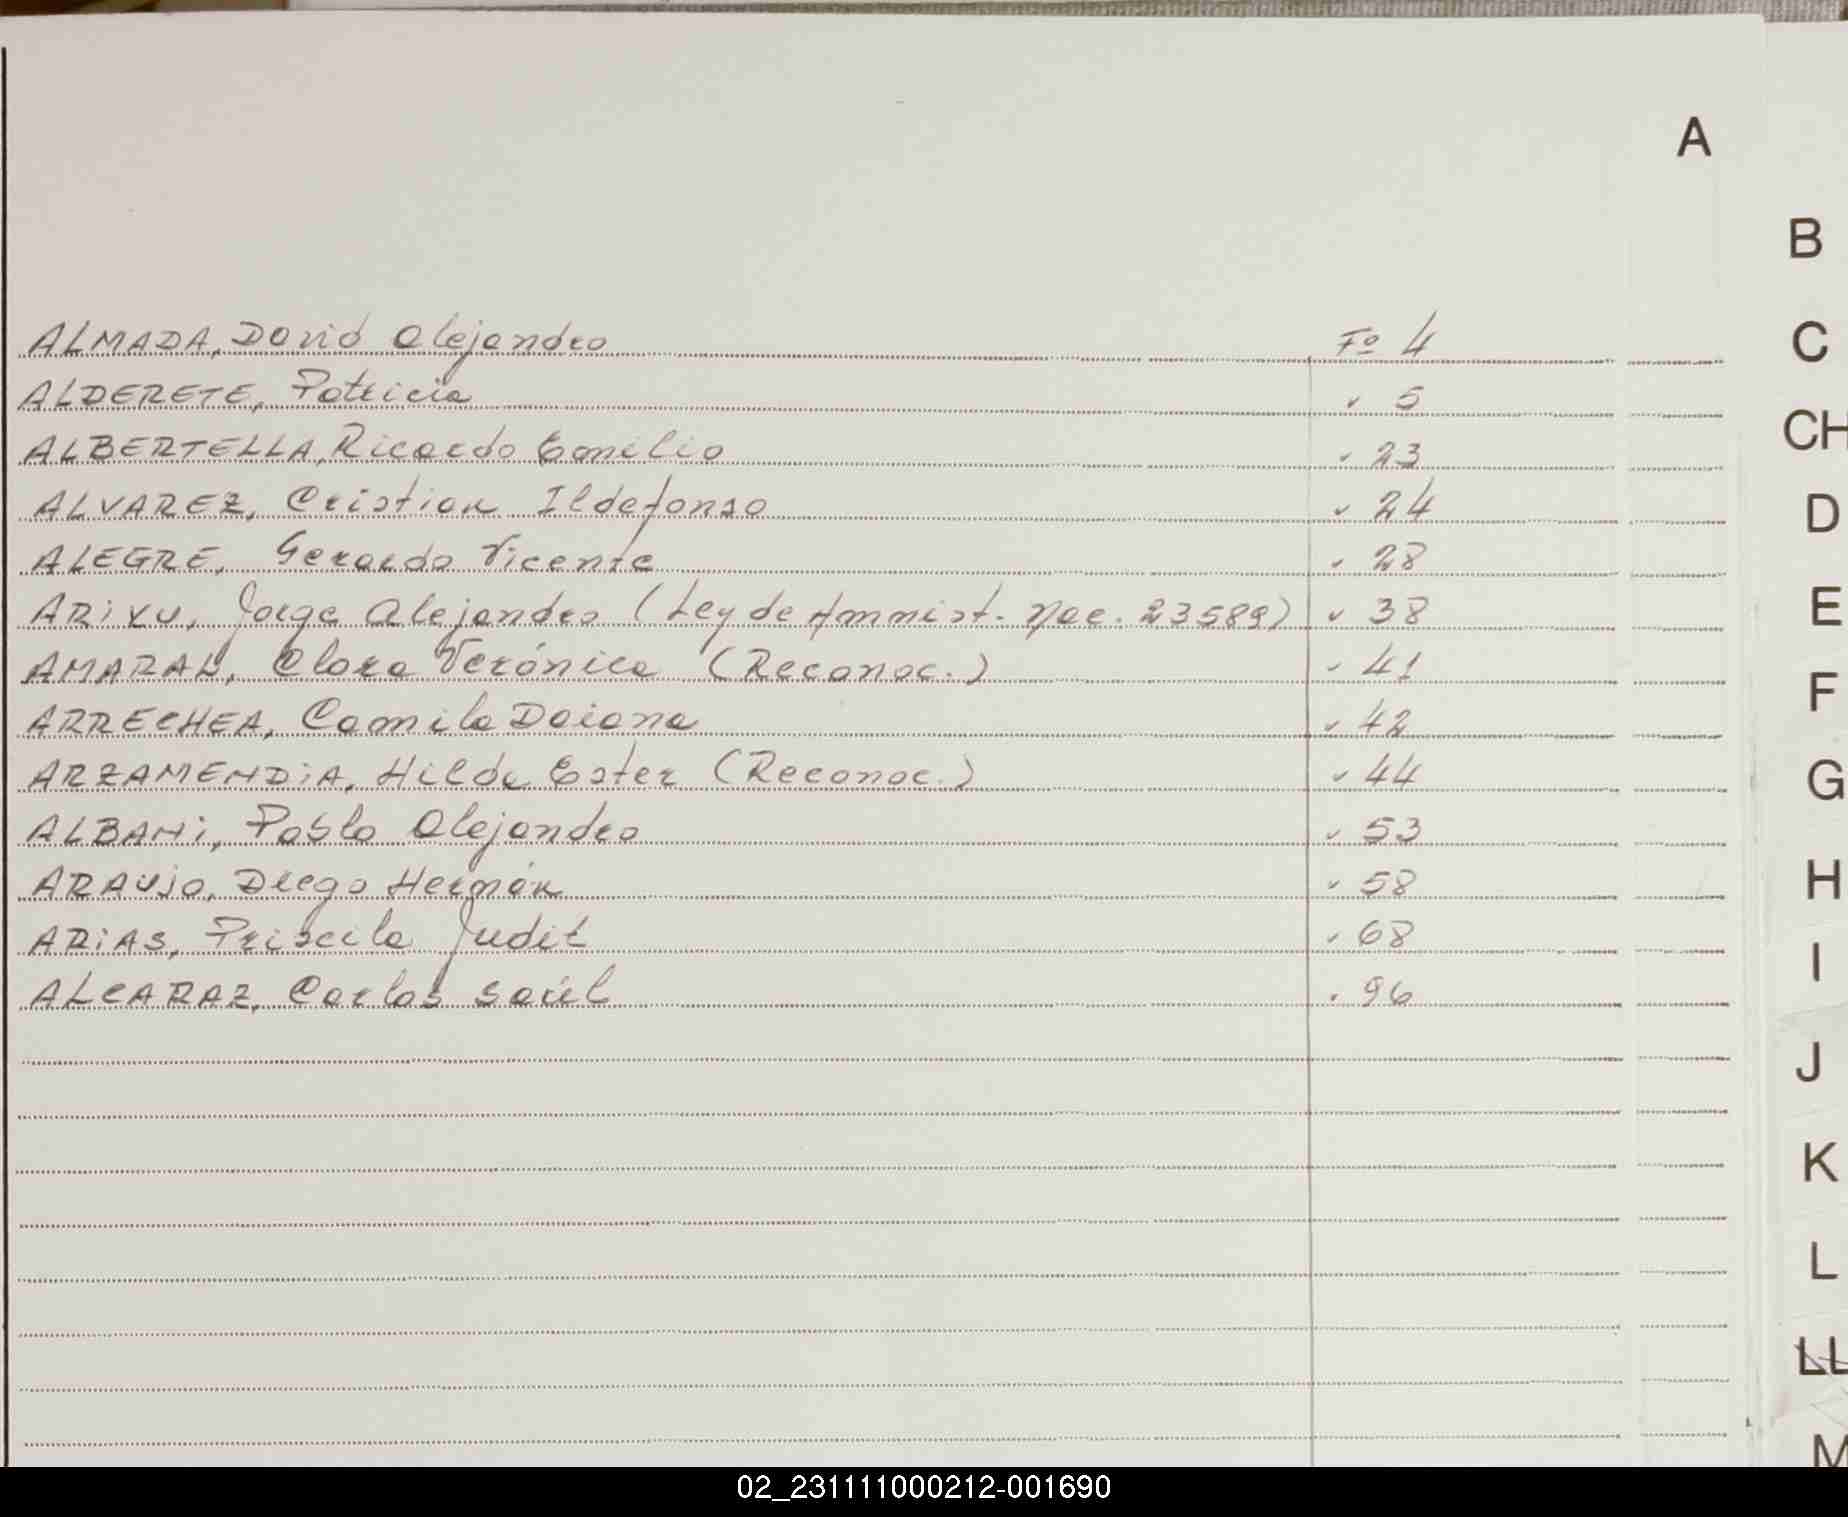 A
B
C
CH
D
E
F
G
H
I
J
K
L
LL
M
ALMADA, David Alejandro Fº 4
ALDERETE, Patricia " 5
ALBERTELLA, Ricardo Emilio " 23
ALVAREZ, Cristian Ildefonso " 24
ALEGRE, Gerardo Vicente " 28
ARiYU, Jorge Alejandro (Ley de Ammist. Nac. 23589) " 38
AMARAL, Clara Verónica (Reconoc.) " 41
ARRECHEA, Camila Daiana " 42
ARZAMENDiA, Hilda Ester (Reconoc.) " 44
ALBANi, Pablo Alejandro " 53
ARAUJO, Diego Hernán " 58
ARiAS, Priscila Judit " 68
ALCARAZ, Carlos Saúl " 96
02_231111000212-001690